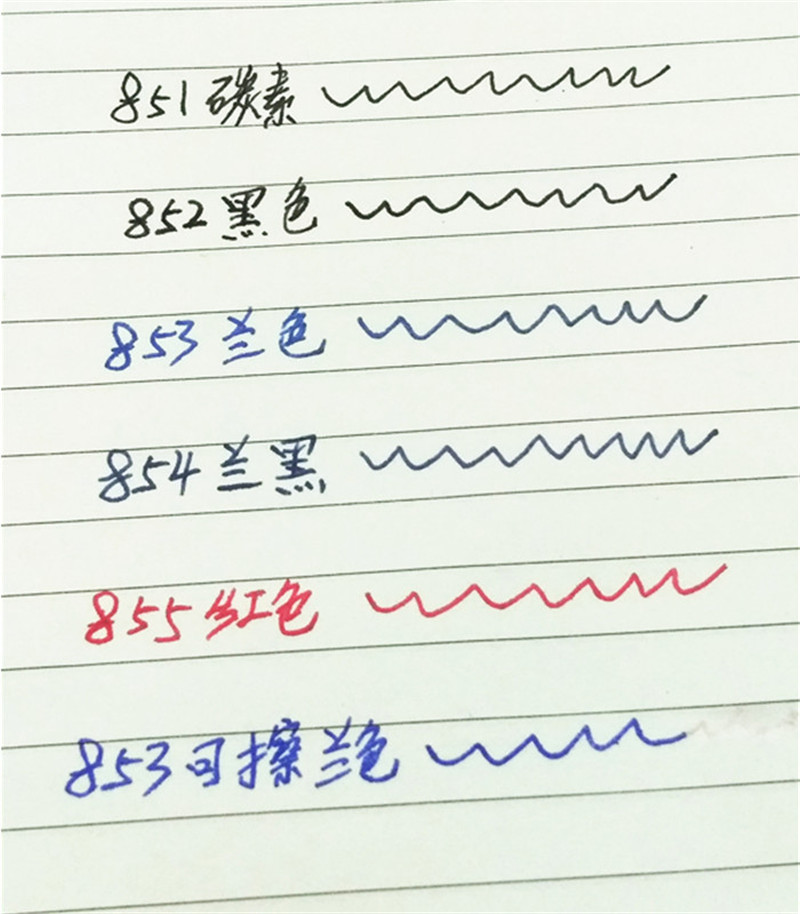 851碳素
852黑色
853兰色
854兰黑
855红色
853可擦兰色